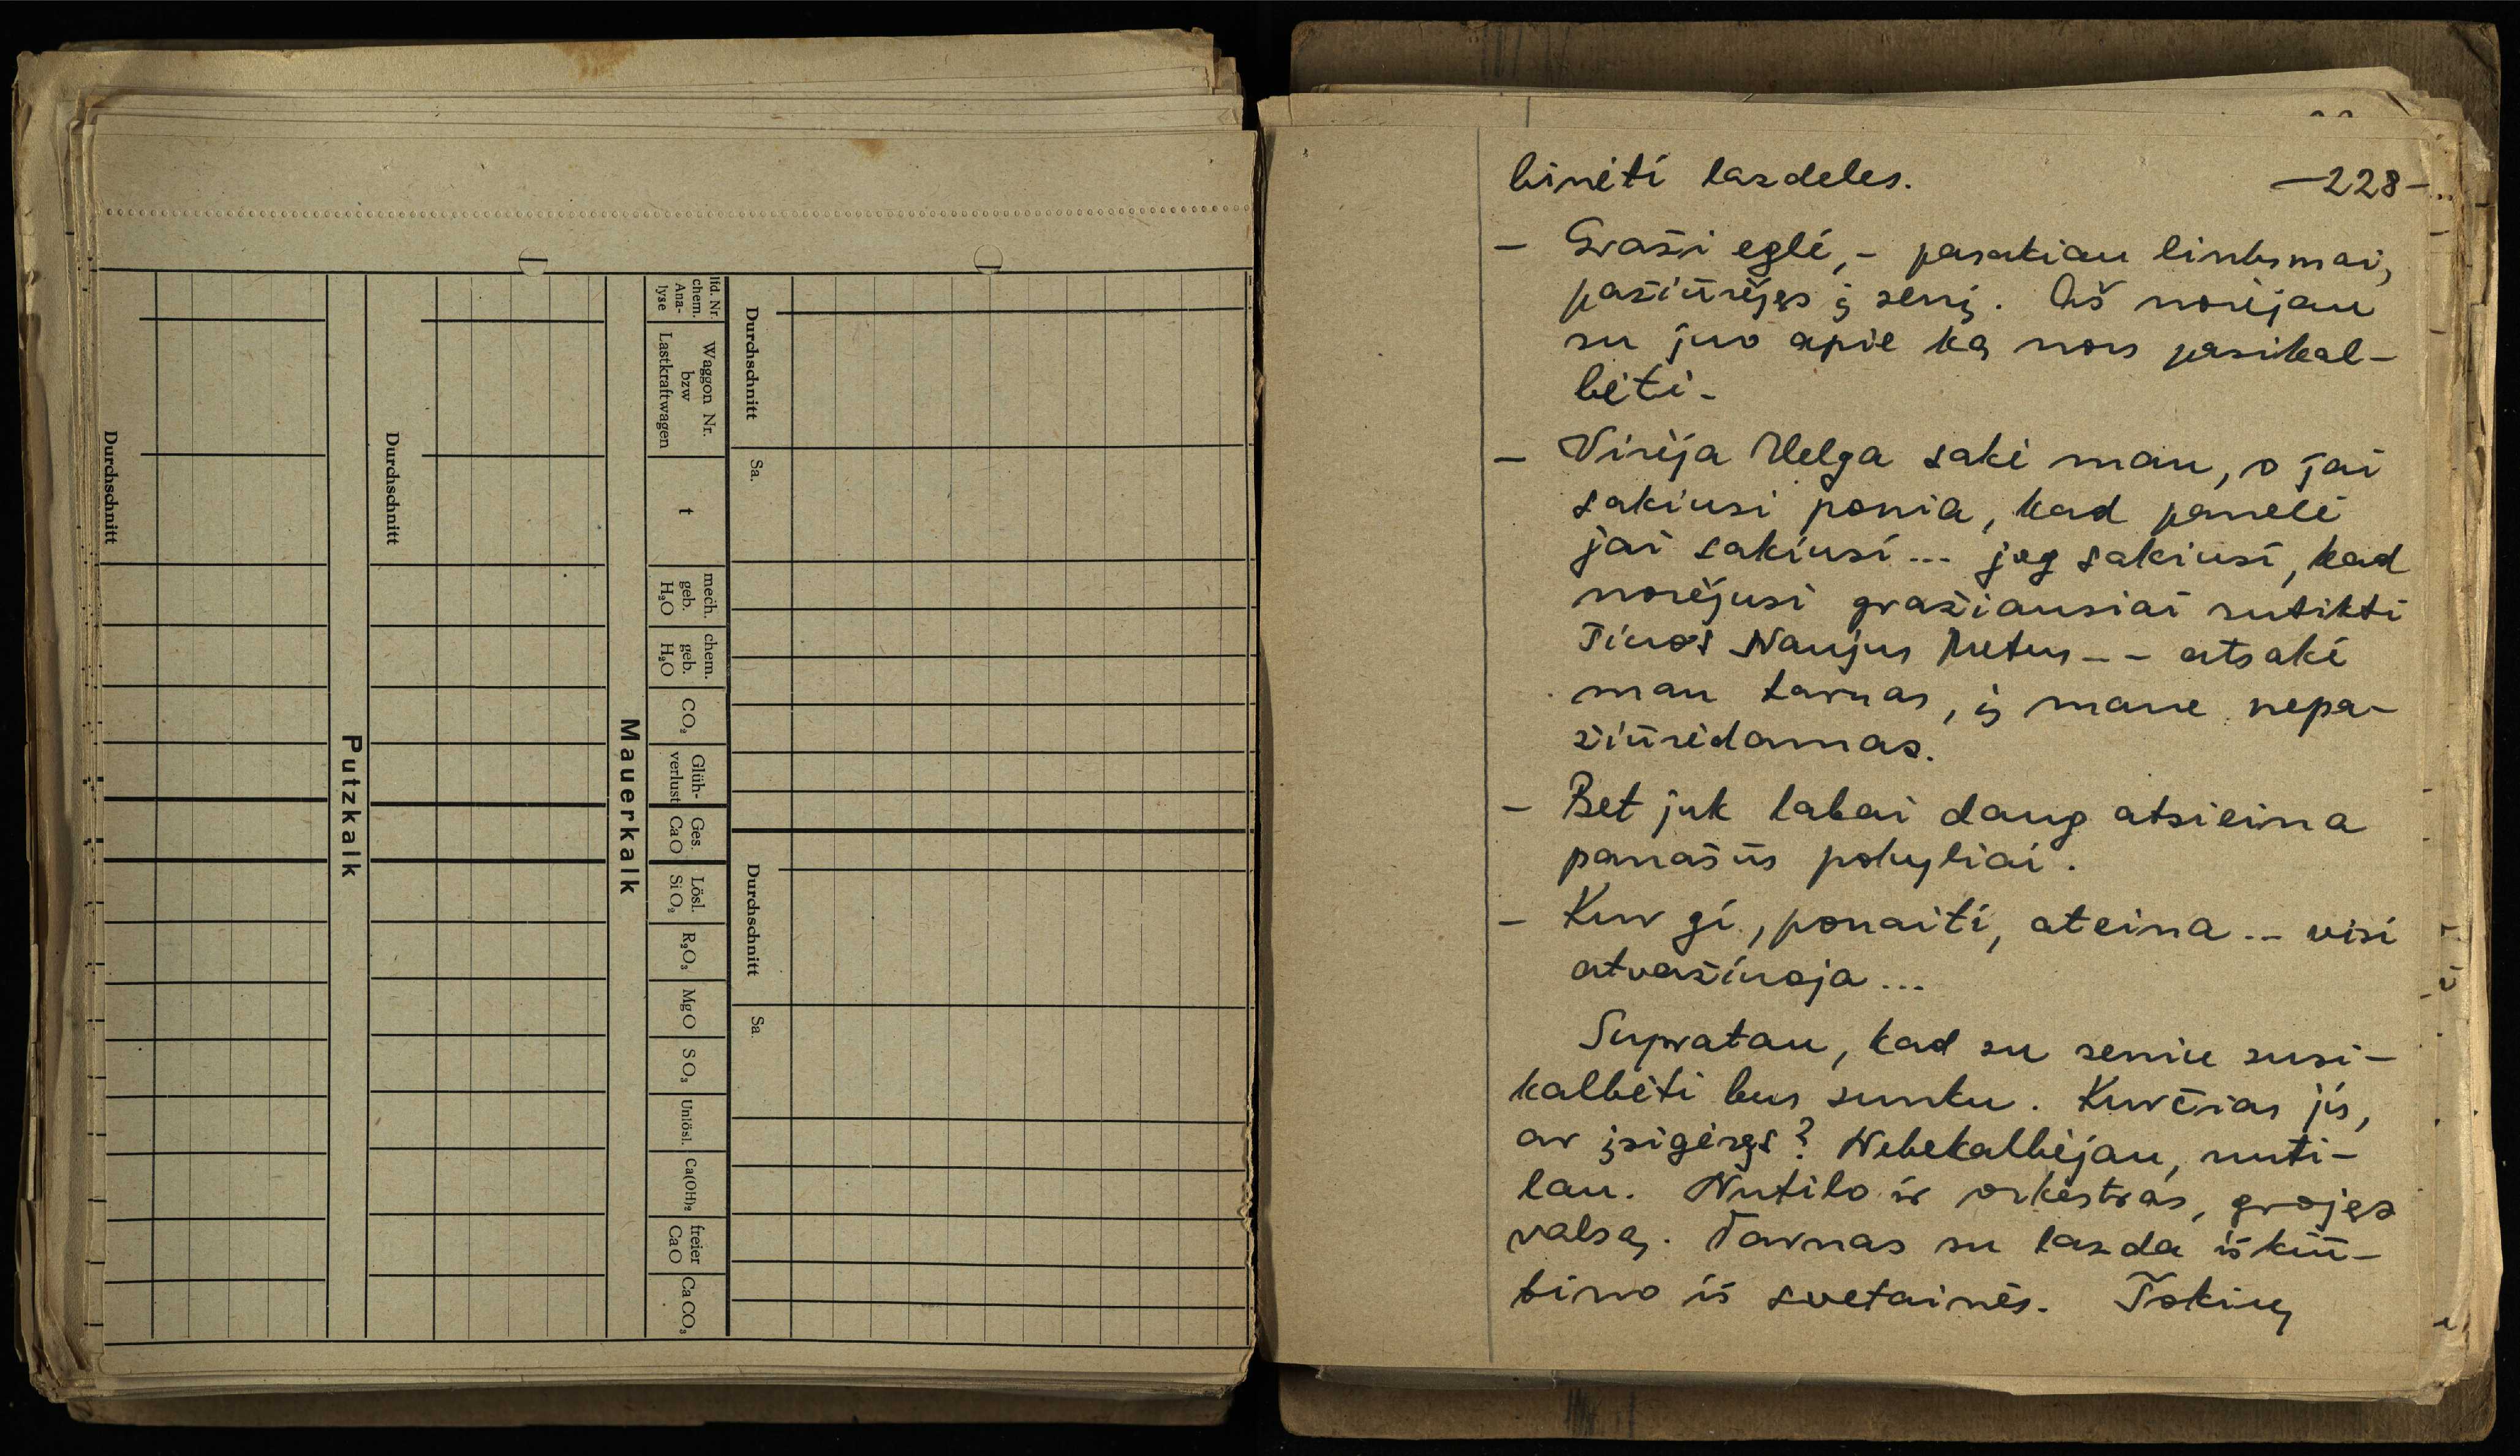 lfd. Nr.
chem.
Ana-
lyse
Waggon Nr.
bzw
Lastkraftwagen
t
mech.
geb.
H₂O
chem.
geb.
H₂O
CO₂
Glüh-
verlust
Ges.
CaO
Lösl.
SiO₂
R₂O₃
MgO
SO₃
Unlösl.
Ca(OH)₂
freier
CaO
CaCO₃
Durchschnitt
Sa.
Durchschnitt
Sa.
Mauerkalk
Durchschnitt
Putzkalk
Durchschnitt
binėti lazdeles.
—228—
— Graži eglė, – pasakiau linksmai,
pažiūrėjęs į senį. Aš norėjau
su juo apie ką nors pasikal-
bėti.
— Virėja Helga sakė man, o jai
sakiusi ponia, kad panelė
jai sakiusi... jog sakiusi, kad
norėjusi gražiausiai sutikti
šiuos Naujus Metus – – atsakė
man tarnas, į mane nepa-
žiūrėdamas.
— Bet juk labai daug atsieina
panašūs pobyliai.
— Kur gi, ponaiti, ateina... visi
atvažiuoja...
Supratau, kad su seniu susi-
kalbėti bus sunku. Kurčias jis,
ar įsigėręs? Nebekalbėjau, nuti-
lau. Nutilo ir orkestras, grojęs
valsą. Tarnas su lazda iškiū-
tino iš svetainės. Tokių